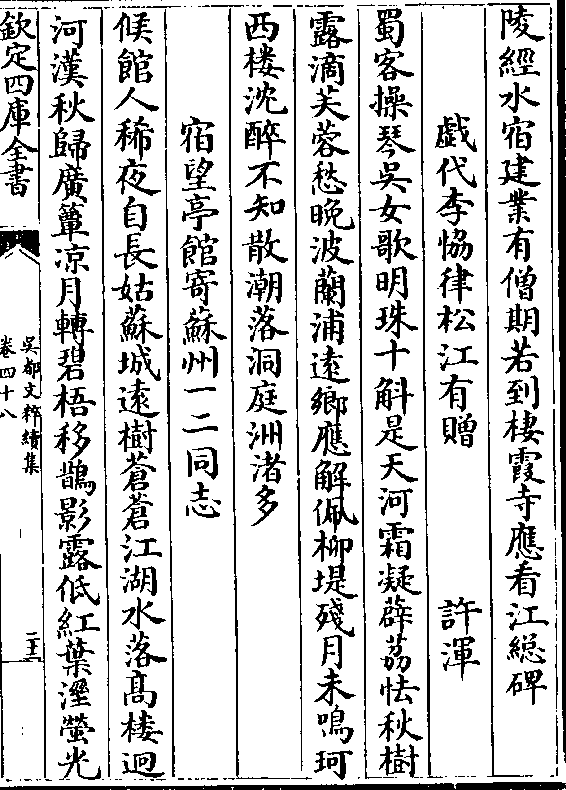 陵經水宿建業有僧期若到棲霞寺應看江緫碑
戯代李恊律松江有贈　許渾
蜀客操琴吳女歌明珠十斛是天河霜凝薜茘怯秋樹
露滴芙蓉愁晚波蘭浦逺鄉應解佩柳堤殘月未鳴珂
西楼沈醉不知散潮落洞庭洲渚多
宿望亭館寄蘇州一二同志
候館人稀夜自長姑蘇城逺樹蒼蒼江湖水落髙楼迥
河漢秋歸廣簟凉月轉碧梧移鵲影露低紅葉溼螢光
欽定四庫全書
吳都文粹續集
卷四十八
二十三